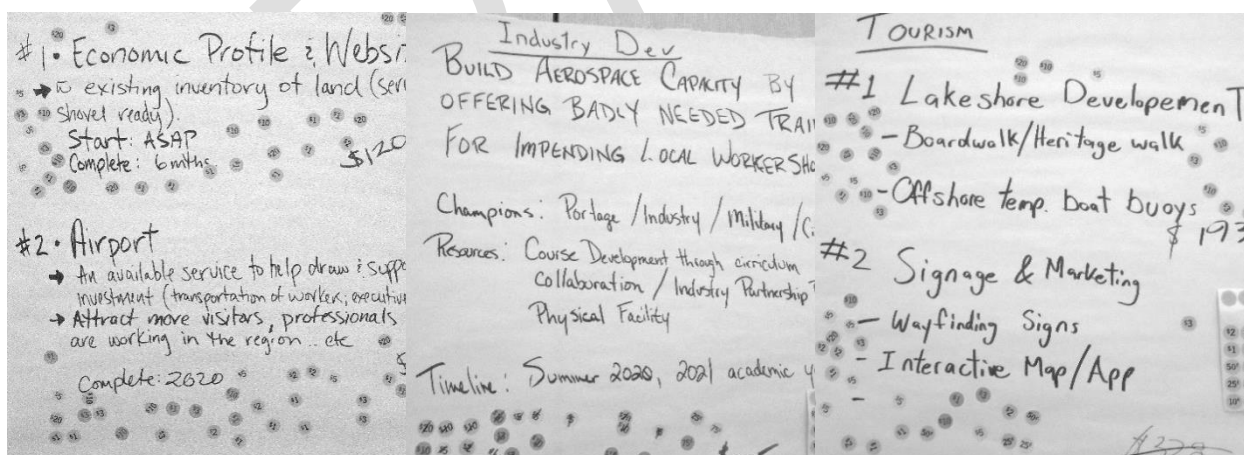 #1. Economic Profile & Websi
→ existing inventory of land (ser
shovel ready).
Start: ASAP
Complete: 6 mths
$120
#2. Airport
→ An available service to help draw & suppo
investment (transportation of workers, executive
→ Attract more visitors, professionals
are working in the region .. etc
Complete: 2020
Industry Dev
BUILD AEROSPACE CAPACITY BY
OFFERING BADLY NEEDED TRAI
FOR IMPENDING LOCAL WORKER SHO
Champions: Portage / Industry / Military / C
Resources: Course Development through cirriculum
Collaboration / Industry Partnership
Physical Facility
Timeline: Summer 2020, 2021 academic y
TOURISM
#1 Lakeshore Developement
- Boardwalk/Heritage walk
- Offshore temp. boat buoys
$193
#2 Signage & Marketing
- Wayfinding Signs
- Interactive Map/App
-